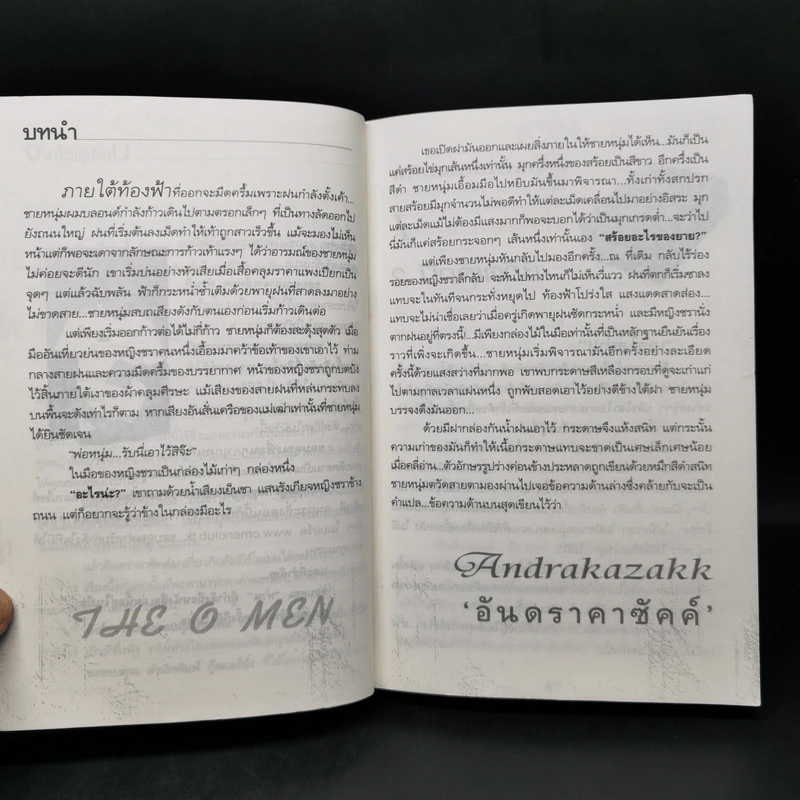 บทนำ
ภายใต้ท้องฟ้าที่ออกจะมืดครึ้มเพราะฝนกำลังตั้งเค้า...
ชายหนุ่มผมบลอนด์กำลังก้าวเดินไปตามตรอกเล็กๆ ที่เป็นทางลัดออกไป
ยังถนนใหญ่ ฝนที่เริ่มต้นลงเม็ดทำให้เท้าถูกสาวเร็วขึ้น แม้จะมองไม่เห็น
หน้าแต่ก็พอจะเดาจากลักษณะการก้าวเท้าแรงๆ ได้ว่าอารมณ์ของชายหนุ่ม
ไม่ค่อยจะดีนัก เขาเริ่มบ่นอย่างหัวเสียเมื่อเสื้อคลุมราคาแพงเปียกเป็น
จุดๆ แต่แล้วฉับพลัน ฟ้าก็กระหน่ำซ้ำเติมด้วยพายุฝนที่สาดลงมาอย่าง
ไม่ขาดสาย...ชายหนุ่มสบถเสียงดังกับตนเองก่อนเริ่มก้าวเดินต่อ
แต่เพียงเริ่มออกก้าวต่อได้ไม่กี่ก้าว ชายหนุ่มก็ต้องสะดุ้งสุดตัว เมื่อ
มืออันเหี่ยวย่นของหญิงชราคนหนึ่งเอื้อมมาคว้าข้อเท้าของเขาเอาไว้ ท่าม
กลางสายฝนและความมืดครึ้มของบรรยากาศ หน้าของหญิงชราถูกบดบัง
ไว้สิ้นภายใต้เงาของผ้าคลุมศีรษะ แม้เสียงของสายฝนที่หล่นกระทบลง
บนพื้นจะดังเท่าไรก็ตาม หากเสียงอันสั่นเครือของแม่เฒ่าเท่านั้นที่ชายหนุ่ม
ได้ยินชัดเจน
“พ่อหนุ่ม...รับนี่เอาไว้สิจ๊ะ”
ในมือของหญิงชราเป็นกล่องไม้เก่าๆ กล่องหนึ่ง
“อะไรน่ะ?” เขาถามด้วยน้ำเสียงเย็นชา แสนรังเกียจหญิงชราข้าง
ถนน แต่ก็อยากจะรู้ว่าข้างในกล่องมีอะไร
THE O MEN
เธอเปิดฝามันออกและเผยสิ่งภายในให้ชายหนุ่มได้เห็น...มันก็เป็น
แค่สร้อยไข่มุกเส้นหนึ่งเท่านั้น มุกครึ่งหนึ่งของสร้อยเป็นสีขาว อีกครึ่งเป็น
สีดำ ชายหนุ่มเอื้อมมือไปหยิบมันขึ้นมาพิจารณา...ทั้งเก่าทั้งสกปรก
สายสร้อยมีมุกจำนวนไม่พอดีทำให้แต่ละเม็ดเคลื่อนไปมาอย่างอิสระ มุก
แต่ละเม็ดแม้ไม่ต้องมีแสงมากก็พอจะบอกได้ว่าเป็นมุกเกรดต่ำ...จะว่าไป
นี่มันก็แค่สร้อยกระจอกๆ เส้นหนึ่งเท่านั้นเอง “สร้อยอะไรของยาย?”
แต่เพียงชายหนุ่มหันกลับไปมองอีกครั้ง...ณ ที่เดิม กลับไร้วี่ร่อง
รอยของหญิงชราลึกลับ จะหันไปทางไหนก็ไม่เห็นวี่แวว ฝนที่ตกก็เริ่มซาลง
แทบจะในทันทีจนกระทั่งหยุดไป ท้องฟ้าโปร่งใส แสงแดดสาดส่อง...
แทบจะไม่น่าเชื่อเลยว่าเมื่อครู่เกิดพายุฝนซัดกระหน่ำ และมีหญิงชรานั่ง
ตากฝนอยู่ที่ตรงนี้!...มีเพียงกล่องไม้ในมือเท่านั้นที่เป็นหลักฐานยืนยันเรื่อง
ราวที่เพิ่งจะเกิดขึ้น...ชายหนุ่มเริ่มพิจารณามันอีกครั้งอย่างละเอียด
ครั้งนี้ด้วยแสงสว่างที่มากพอ เขาพบกระดาษสีเหลืองกรอบที่ดูจะเก่าแก่
ไปตามกาลเวลาแผ่นหนึ่ง ถูกพับสอดเอาไว้อย่างดีข้างใต้ฝา ชายหนุ่ม
บรรจงดึงมันออก...
ด้วยมีฝากล่องกันน้ำฝนเอาไว้ กระดาษจึงแห้งสนิท แต่กระนั้น
ความเก่าของมันก็ทำให้เนื้อกระดาษแทบจะขาดเป็นเศษเล็กเศษน้อย
เมื่อคลี่อ่าน...ตัวอักษรรูปร่างค่อนข้างประหลาดถูกเขียนด้วยหมึกสีดำสนิท
ชายหนุ่มตวัดสายตามองผ่านไปเจอข้อความด้านล่างซึ่งคล้ายกับจะเป็น
คำแปล...ข้อความด้านบนสุดเขียนไว้ว่า
Andrakazakk
‘อันดราคาซัคค์’